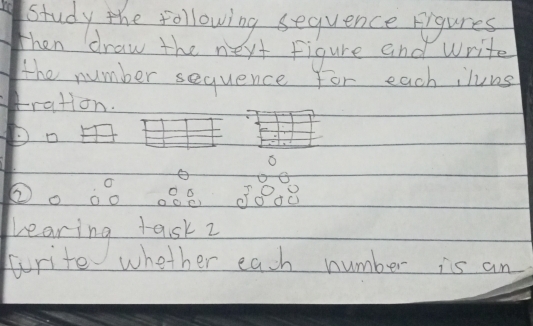 Study the Following sequence Figures
then draw the next Figure and Write
the number sequence For each illuns
tration.
①
②
Learing task 2
Write whether each number is an